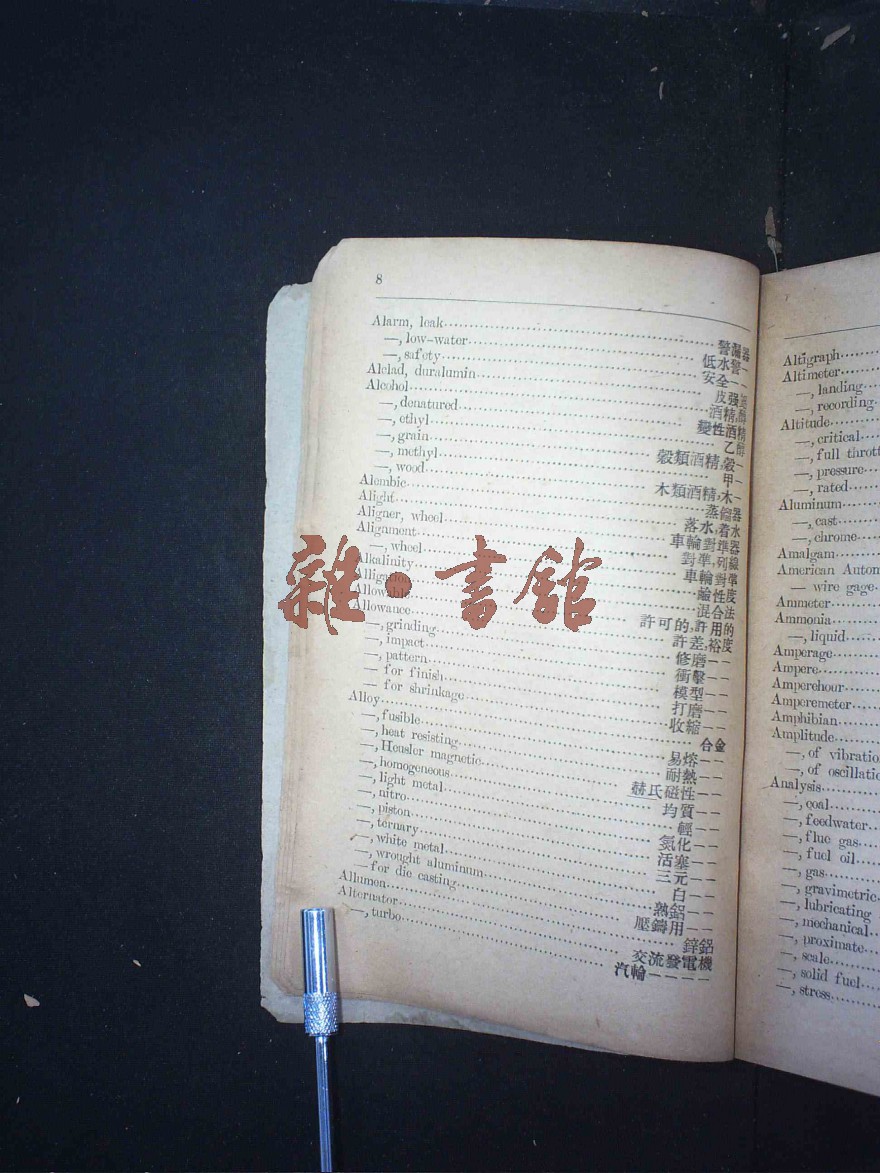 8
Alarm, leak 警漏器
—, low-water 低水警—
—, safety 安全——
Alclad, duralumin 皮强
Alcohol 酒精,醇
—, denatured 變性酒精
—, ethyl 乙醇
—, grain 穀類酒精,穀—
—, methyl 甲—
—, wood 木類酒精,木—
Alembic 蒸餾器
Alight 落水,着水
Aligner, wheel 車輪對準器
Alignment 對準,列線
—, wheel 車輪對準
Alkalinity 鹼性度
Alligation 混合法
Allowable 許可的,許用的
Allowance 許差,裕度
—, grinding 修磨——
—, impact 衝擊——
—, pattern 模型——
— for finish 打磨——
— for shrinkage 收縮——
Alloy 合金
—, fusible 易熔——
—, heat resisting 耐熱——
—, Heusler magnetic 赫氏磁性——
—, homogeneous 均質——
—, light metal 輕——
—, nitro 氮化——
—, piston 活塞——
—, ternary 三元——
—, white metal 白——
—, wrought aluminum 熟鋁——
— for die casting 壓鑄用——
Allumen 鋅鋁
Alternator 交流發電機
—, turbo 汽輪————
Altigraph
Altimeter
—, landing
—, recording
Altitude
—, critical
—, full thrott
—, pressure
—, rated
Aluminum
—, cast
—, chrome
Amalgam
American Autom
— wire gage
Ammeter
Ammonia
—, liquid
Amperage
Ampere
Amperehour
Amperemeter
Amphibian
Amplitude
—, of vibratio
—, of oscillatio
Analysis
—, coal
—, feedwater
—, flue gas
—, fuel oil
—, gas
—, gravimetric
—, lubricating
—, mechanical
—, proximate
—, scale
—, solid fuel
—, stress
雜·書館